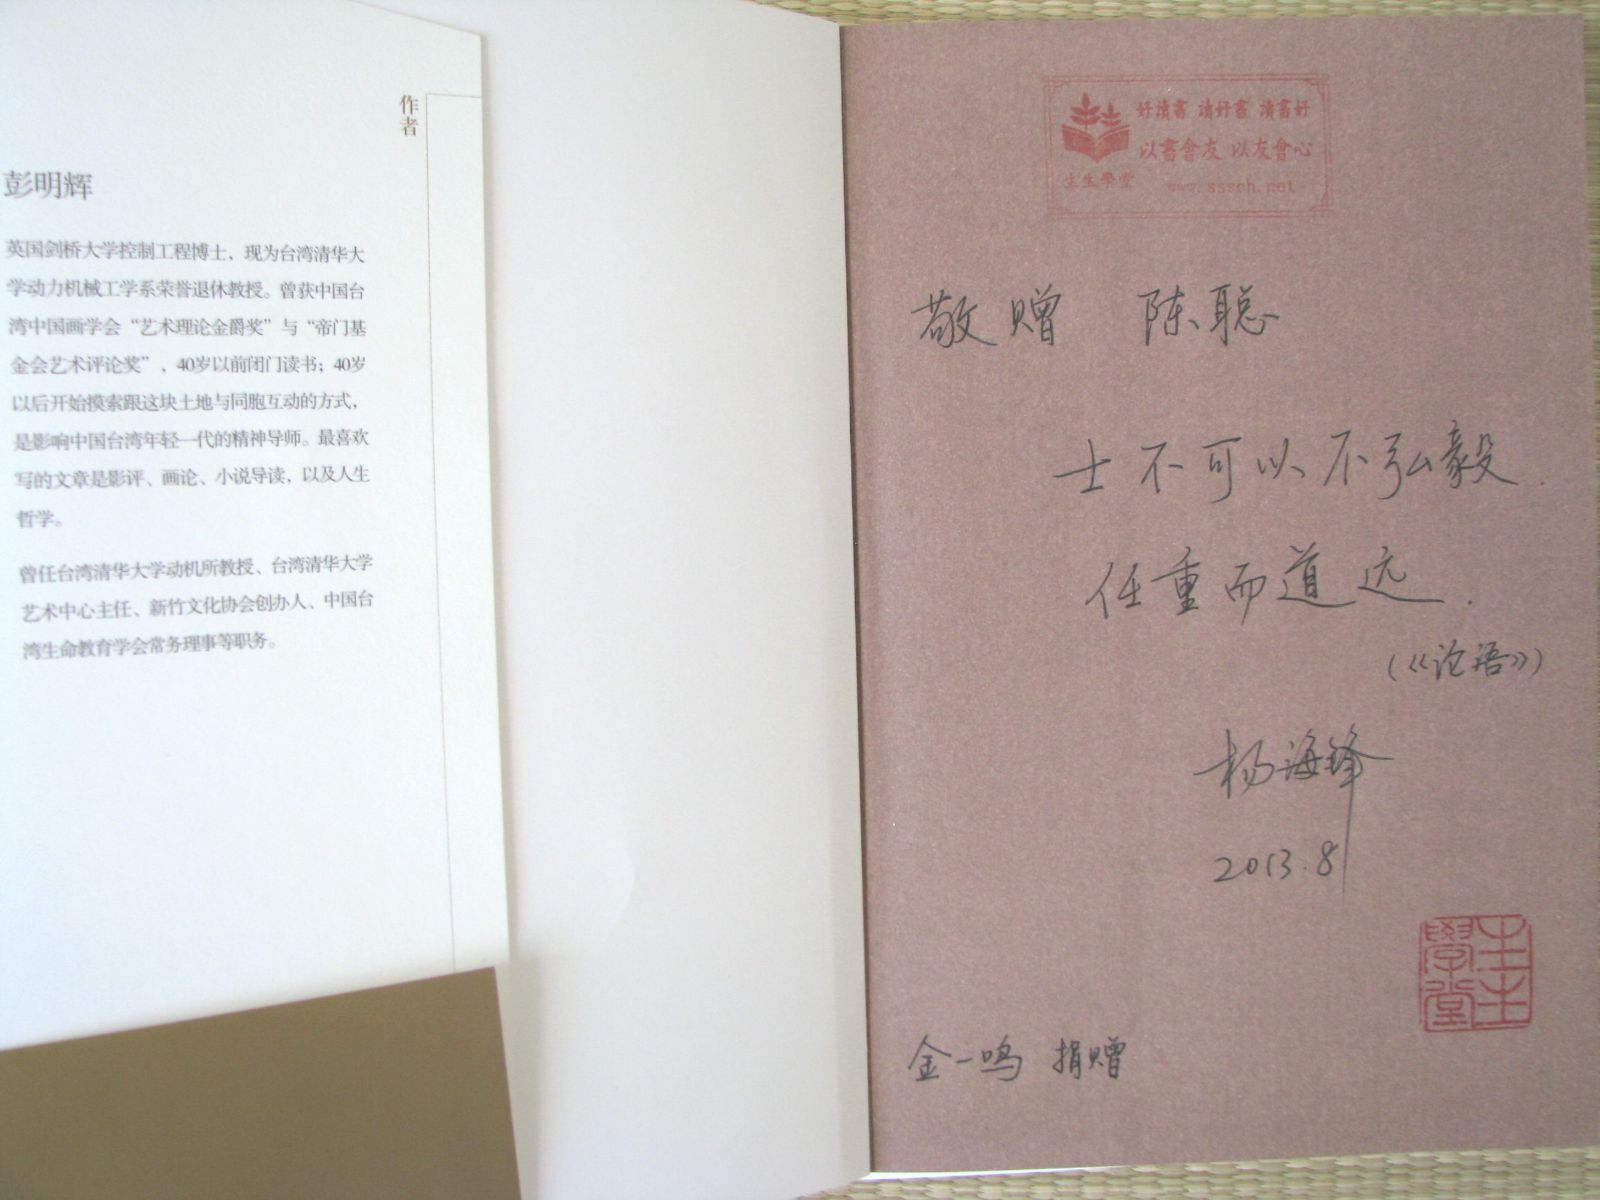 作者
彭明辉
英国剑桥大学控制工程博士，现为台湾清华大
学动力机械工学系荣誉退休教授。曾获中国台
湾中国画学会“艺术理论金爵奖”与“帝门基
金会艺术评论奖”，40岁以前闭门读书；40岁
以后开始摸索跟这块土地与同胞互动的方式，
是影响中国台湾年轻一代的精神导师。最喜欢
写的文章是影评、画论、小说导读，以及人生
哲学。
曾任台湾清华大学动机所教授、台湾清华大学
艺术中心主任、新竹文化协会创办人、中国台
湾生命教育学会常务理事等职务。
好讀書 讀好書 讀書好
以書會友 以友會心
生生學堂 www.sssch.net
敬赠 陈聪
士不可以不弘毅.
任重而道远.
(《论语》)
杨海锋
2013.8
生生學堂
金一鸣 捐赠